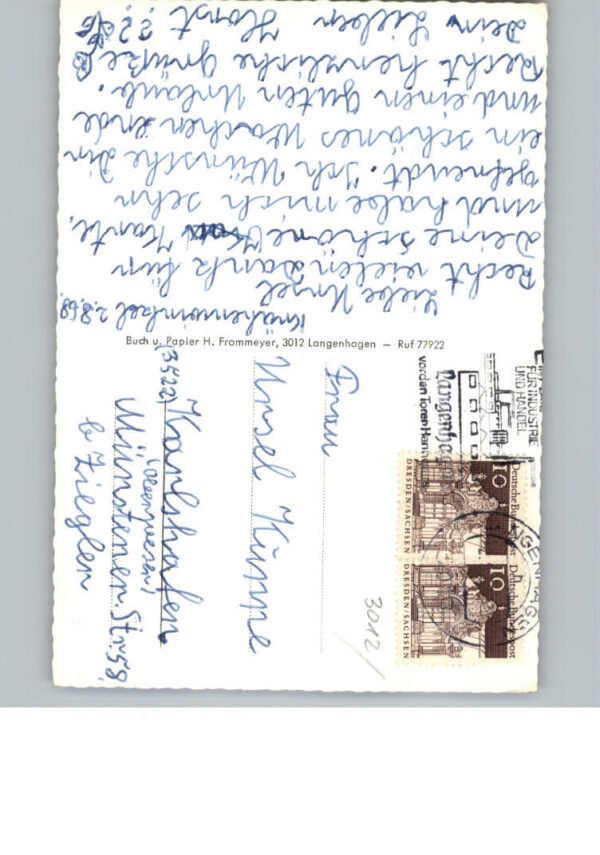 Krähenwinkel 2.8.68
Liebe Ursel
Recht vielen Dank für
Deine schöne Karte.
und habe mich sehr
gefreudt. Ich Wünsche Din
ein schönes Wochen ende
und einen guten Urlaub.
Recht herzliche Grüße
Dein Lieber Horst
Buch u. Papier H. Frommeyer, 3012 Langenhagen — Ruf 77922
Frau
Ursel Künne
3522 Karlshafen
(Oberweser)
Münstener. Str. 58,
b Zieglen
3012/
Langenhagen
vor den Toren Hannovers
FÜR INDUSTRIE
UND HANDEL
Deutsche Bundespost
10
DRESDEN/SACHSEN
Deutsche Bundespost
10
DRESDEN/SACHSEN